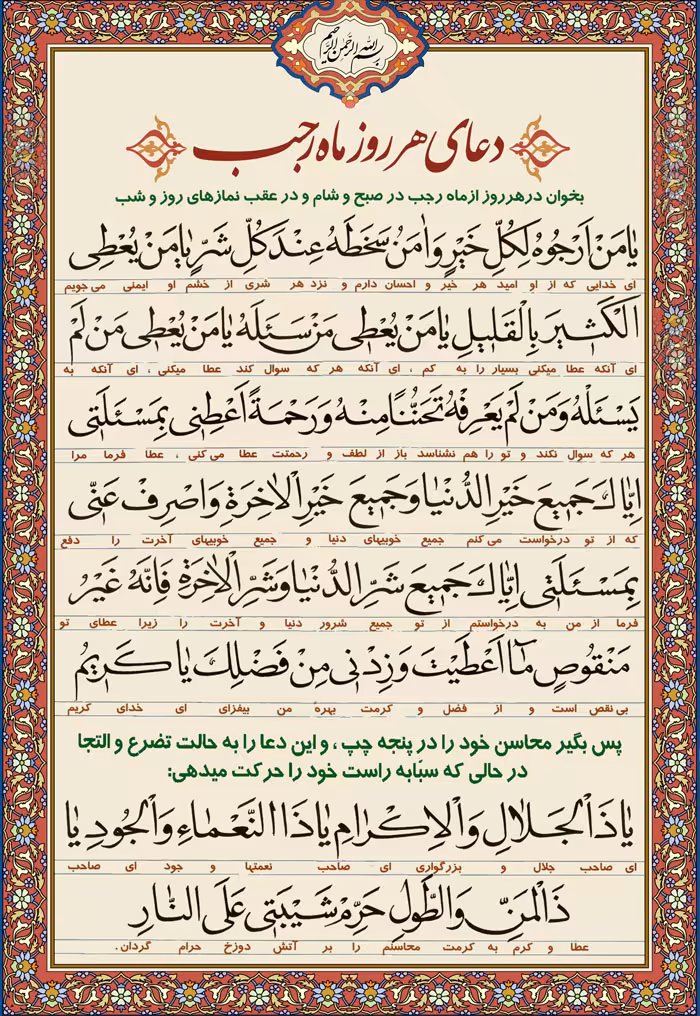 بسم الله الرحمن الرحیم
دعای هر روز ماه رجب
بخوان در هر روز از ماه رجب در صبح و شام و در عقب نمازهای روز و شب
یٰا مَنْ اَرْجُوهُ لِکُلِّ خَیْرٍ وَ اٰمَنُ سَخَطَهُ عِنْدَ کُلِّ شَرٍّ یٰا مَنْ یُعْطِی
ای خدایی که از او امید هر خیر و احسان دارم و نزد هر شری از خشم او ایمنی می‌جویم
الْکَثیٖرَ بِالْقَلیٖلِ یٰا مَنْ یُعْطیٖ مَنْ سَئَلَهُ یٰا مَنْ یُعْطیٖ مَنْ لَمْ
ای آنکه عطا میکنی بسیار را به کم ، ای آنکه هر که سوال کند عطا میکنی ، ای آنکه به
یَسْئَلْهُ وَ مَنْ لَمْ یَعْرِفْهُ تَحَنُّنًا مِنْهُ وَ رَحْمَةً اَعْطِنیٖ بِمَسْئَلَتیٖ
هر که سوال نکند و تو را هم نشناسد باز از لطف و رحمتت عطا می کنی ، عطا فرما مرا
اِیّٰاکَ جَمیٖعَ خَیْرِ الدُّنْیٰا وَ جَمیٖعَ خَیْرِ الْاٰخِرَةِ وَ اصْرِفْ عَنّیٖ
که از تو درخواست می کنم جمیع خوبیهای دنیا و جمیع خوبیهای آخرت را دفع
بِمَسْئَلَتیٖ اِیّٰاکَ جَمیٖعَ شَرِّ الدُّنْیٰا وَ شَرِّ الْاٰخِرَةِ فَاِنَّهُ غَیْرُ
فرما از من به درخواستم از تو جمیع شرور دنیا و آخرت را زیرا عطای تو
مَنْقُوصٍ مٰا اَعْطَیْتَ وَ زِدْنیٖ مِنْ فَضْلِکَ یٰا کَریٖمُ
بی نقص است و از فضل و کرمت بهرهٔ من بیفزای ای خدای کریم
پس بگیر محاسن خود را در پنجه چپ ، و این دعا را به حالت تضرع و التجا
در حالی که سبّابه راست خود را حرکت میدهی:
یٰا ذَا الْجَلٰالِ وَ الْاِکْرٰامِ یٰا ذَا النَّعْمٰاءِ وَ الْجُودِ یٰا
ای صاحب جلال و بزرگواری ای صاحب نعمتها و جود ای صاحب
ذَا الْمَنِّ وَ الطَّوْلِ حَرِّمْ شَیْبَتیٖ عَلَی النّٰارِ
عطا و کرم به کرمت محاسنم را بر آتش دوزخ حرام گردان.